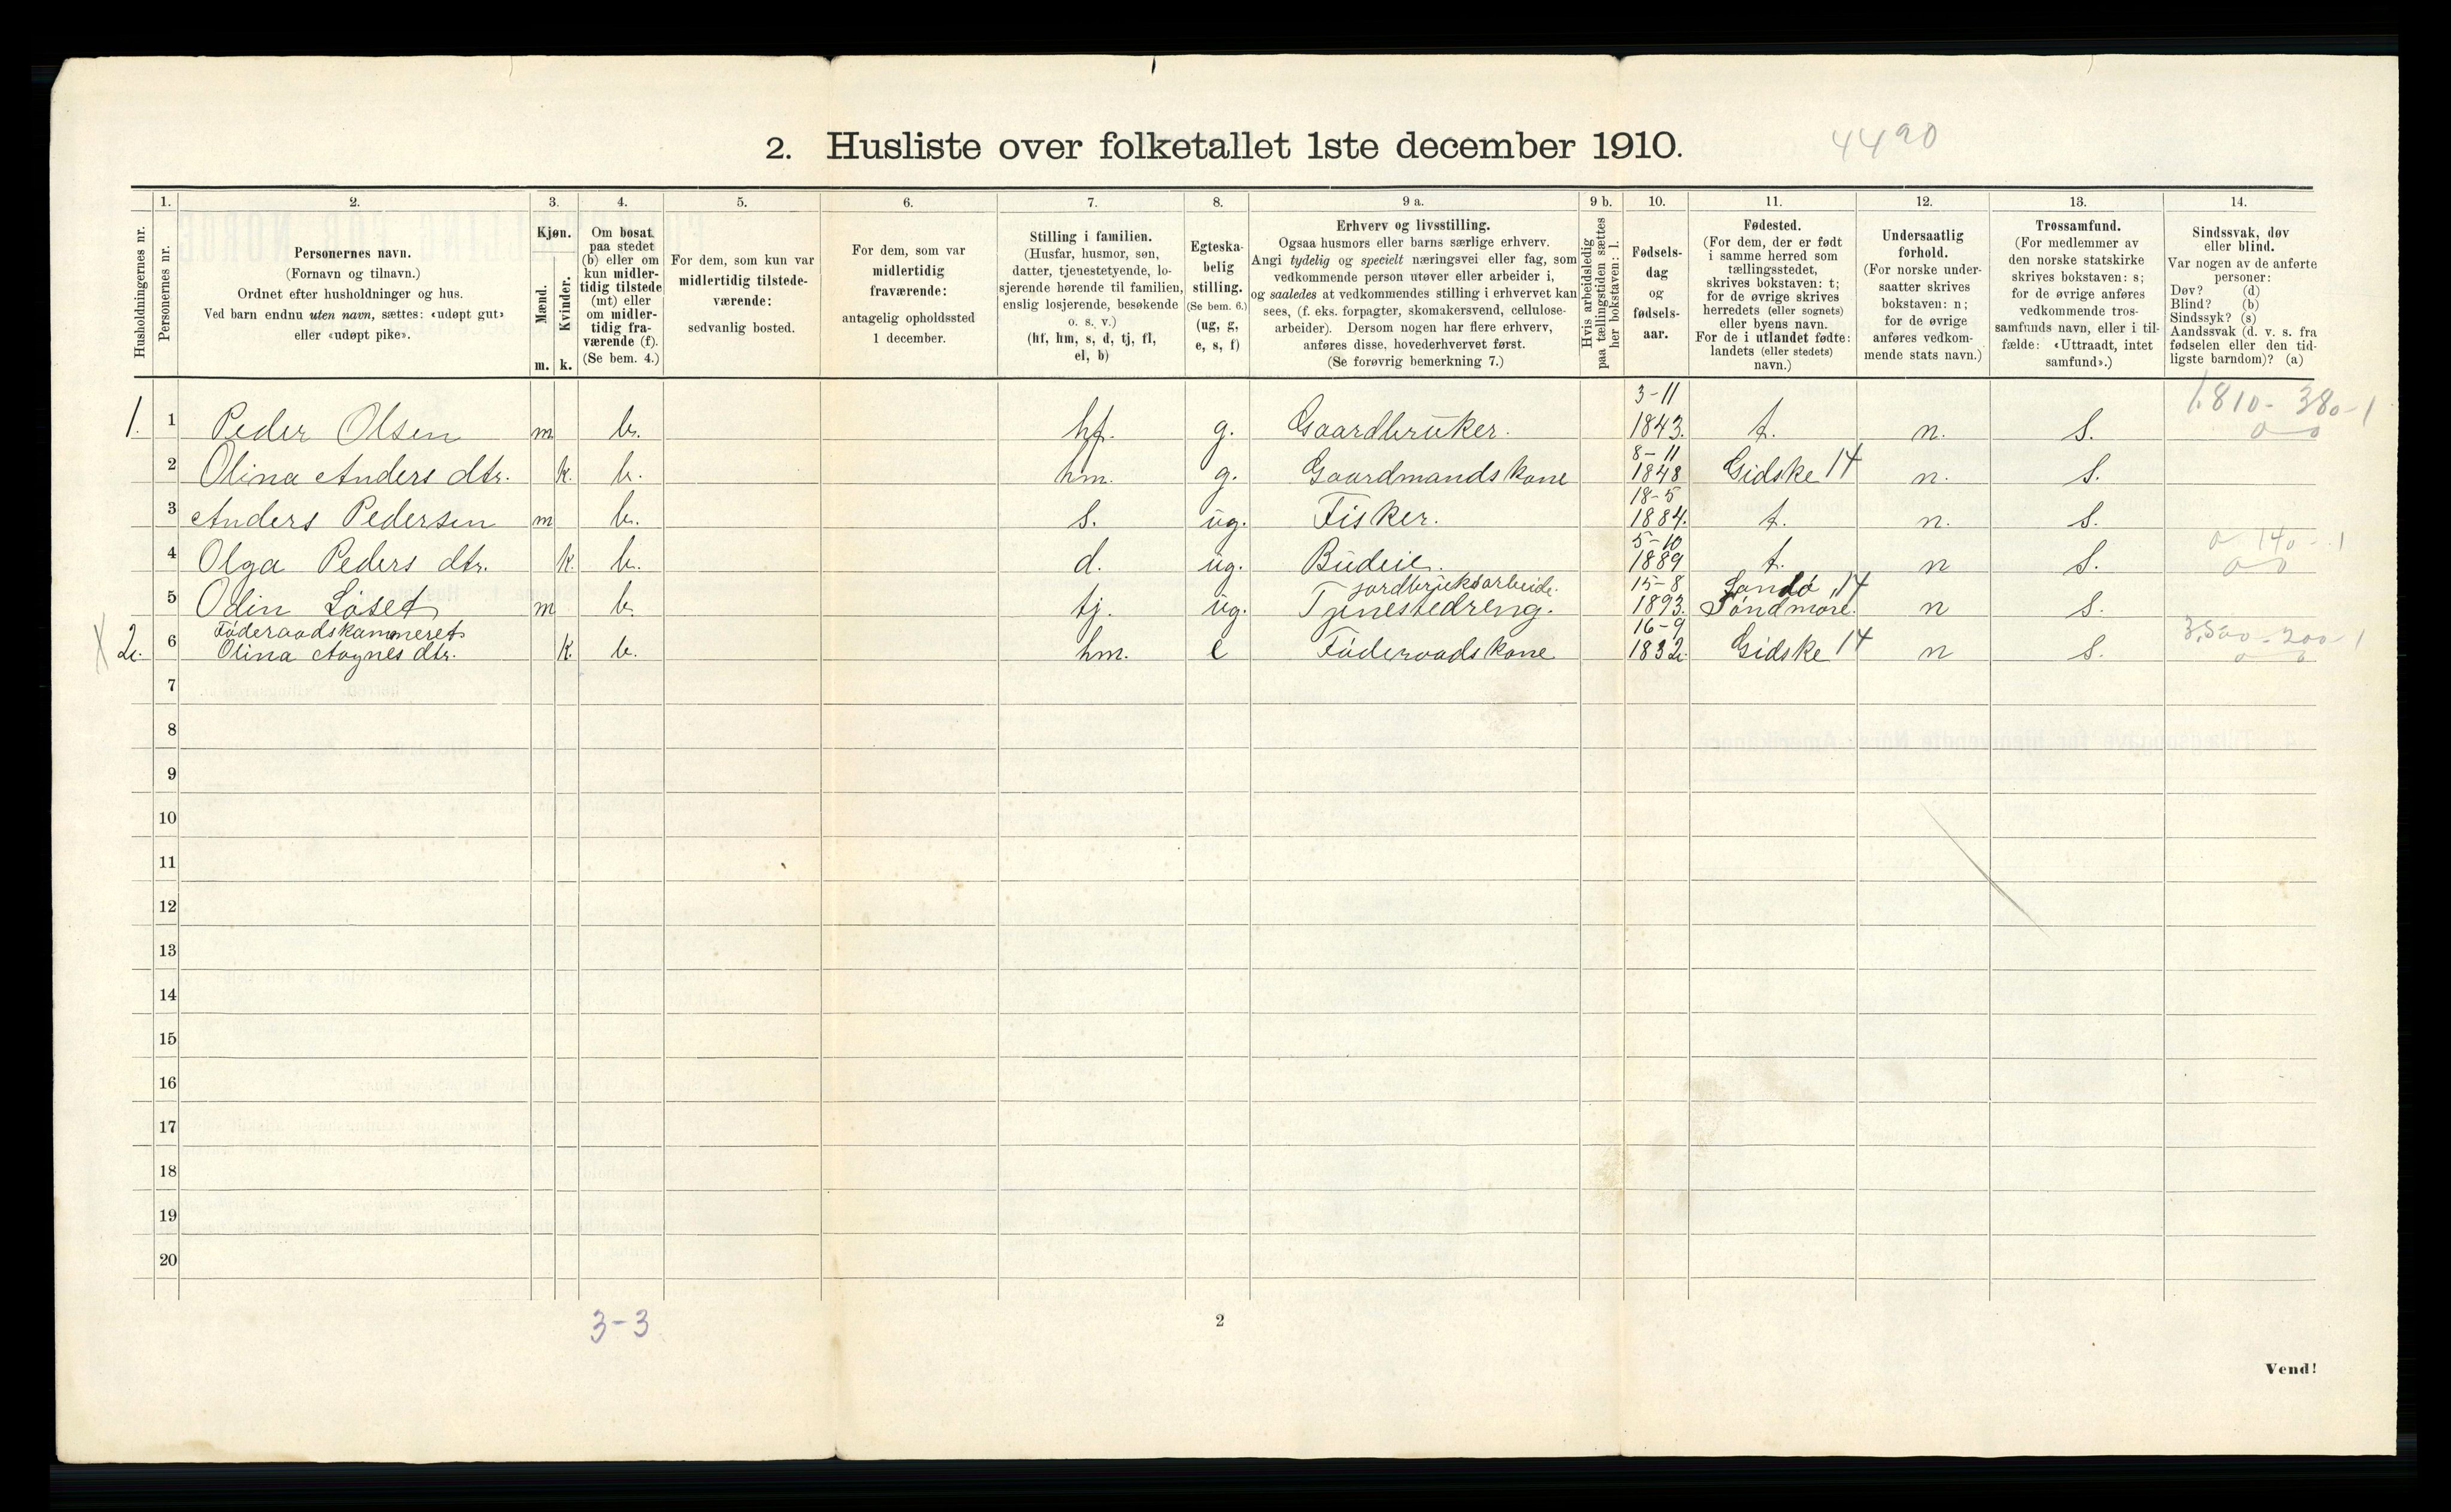 2. Husliste over folketallet 1ste december 1910.
4490
Husholdningernes nr.
1.
Personernes nr.
2.
Personernes navn.
(Fornavn og tilnavn.)
Ordnet efter husholdninger og hus.
Ved barn endnu uten navn, sættes: «udøpt gut»
eller «udøpt pike».
3.
Kjøn.
Mænd.
Kvinder.
m. k.
4.
Om bosat
paa stedet
(b) eller om
kun midler-
tidig tilstede
(mt) eller
om midler-
tidig fra-
værende (f).
(Se bem. 4.)
5.
For dem, som kun var
midlertidig tilstede-
værende:
sedvanlig bosted.
6.
For dem, som var
midlertidig
fraværende:
antagelig opholdssted
1 december.
7.
Stilling i familien.
(Husfar, husmor, søn,
datter, tjenestetyende, lo-
sjerende hørende til familien,
enslig losjerende, besøkende
o. s. v.)
(hf, hm, s, d, tj, fl,
el, b)
8.
Egteska-
belig
stilling.
(Se bem. 6.)
(ug, g,
e, s, f)
9 a.
Erhverv og livsstilling.
Ogsaa husmors eller barns særlige erhverv.
Angi tydelig og specielt næringsvei eller fag, som
vedkommende person utøver eller arbeider i,
og saaledes at vedkommendes stilling i erhvervet kan
sees, (f. eks. forpagter, skomakersvend, cellulose-
arbeider). Dersom nogen har flere erhverv,
anføres disse, hovederhvervet først.
(Se forøvrig bemerkning 7.)
9 b.
Hvis arbeidsledig
paa tællingstiden sættes
her bokstaven: l.
10.
Fødsels-
dag
og
fødsels-
aar.
11.
Fødested.
(For dem, der er født
i samme herred som
tællingsstedet,
skrives bokstaven: t;
for de øvrige skrives
herredets (eller sognets)
eller byens navn.
For de i utlandet fødte:
landets (eller stedets)
navn.)
12.
Undersaatlig
forhold.
(For norske under-
saatter skrives
bokstaven: n;
for de øvrige
anføres vedkom-
mende stats navn.)
13.
Trossamfund.
(For medlemmer av
den norske statskirke
skrives bokstaven: s;
for de øvrige anføres
vedkommende tros-
samfunds navn, eller i til-
fælde: «Uttraadt, intet
samfund».)
14.
Sindssvak, døv
eller blind.
Var nogen av de anførte
personer:
Døv? (d)
Blind? (b)
Sindssyk? (s)
Aandssvak (d. v. s. fra
fødselen eller den tid-
ligste barndom)? (a)
1. 1 Peder Olsen m b. hf. g. Gaardbruker. 3-11 1843. t. n. s. 1.810-380-1 0 0
2 Olina Anders dtr. k. b. hm. g. Gaardmandskone 8-11 1848 Gidske 14 n. s.
3 Anders Pedersen m b. s. ug. Fisker. 18-5 1884. t. n. s.
4 Olga Peders dtr. k. b. d. ug. Budeie. 5-10 1889 t. n s. 0 140-1 0 0
jordbruksarbeide. 15-8 Sandø 14
5 Odin Løset m b. tj. ug. Tjenestedreng. 1893. Søndmøre. n s.
Føderaadskammeret 16-9
X 2. 6 Olina Aagnes dtr. k. b. hm. e Føderaadskone 1832. Gidske 14 n s. 3.500-200-1 0 0
7
8
9
10
11
12
13
14
15
16
17
18
19
20
3-3
2
Vend!